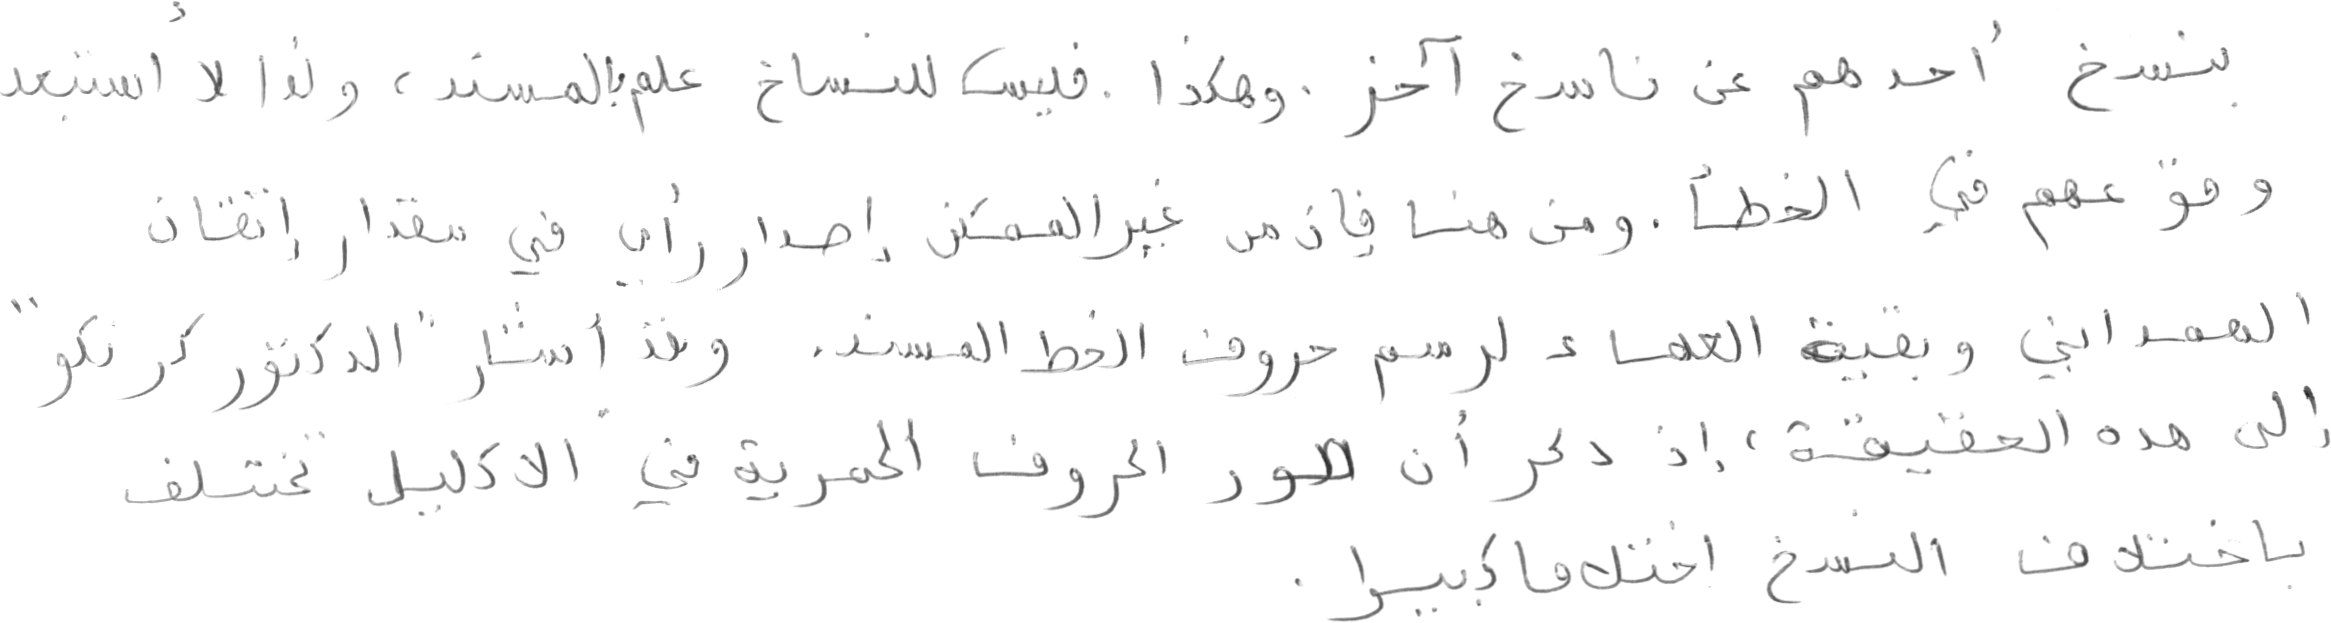 ينسخ أحدهم عن ناسخ آخر. وهكذا. فليس للنساخ علم بالمسند، ولذا لا أستبعد
وقوعهم في الخطأ. ومن هنا فإن من غير الممكن إصدار رأي في مقدار إتقان
الهمداني وبقية العلماء لرسم حروف الخط المسند. وقد أشار "الدكتور كرنكو"
إلى هذه الحقيقة، إذ ذكر أن صور الحروف الحميرية في "الاكليل" تختلف
باختلاف النسخ اختلافا كبيرا.